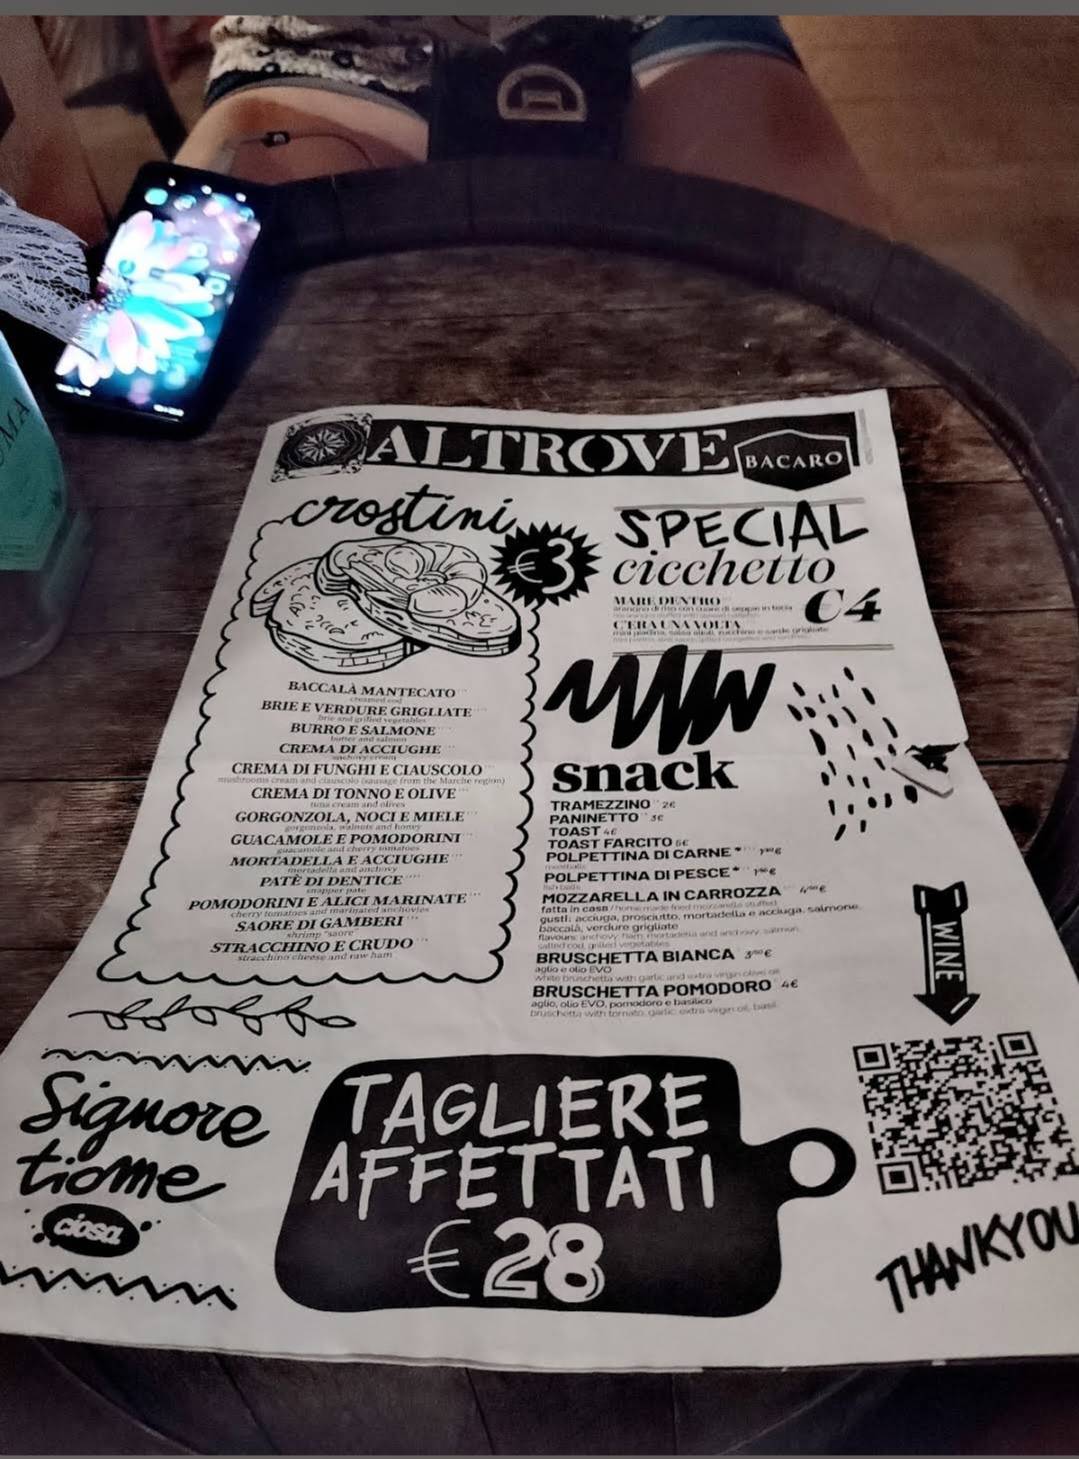 ALTROVE
BACARO
crostini
€3
BACCALÀ MANTECATO
creamed cod
BRIE E VERDURE GRIGLIATE
brie and grilled vegetables
BURRO E SALMONE
butter and salmon
CREMA DI ACCIUGHE
anchovy cream
CREMA DI FUNGHI E CIAUSCOLO
mushrooms cream and ciauscolo (sausage from the Marche region)
CREMA DI TONNO E OLIVE
tuna cream and olives
GORGONZOLA, NOCI E MIELE
gorgonzola, walnuts and honey
GUACAMOLE E POMODORINI
guacamole and cherry tomatoes
MORTADELLA E ACCIUGHE
mortadella and anchovy
PATÈ DI DENTICE
snapper patè
POMODORINI E ALICI MARINATE
cherry tomatoes and marinated anchovies
SAORE DI GAMBERI
shrimp "saore"
STRACCHINO E CRUDO
stracchino cheese and raw ham
SPECIAL
cicchetto
€4
MARE DENTRO
arancino di riso con cuore di seppie in tecia
C'ERA UNA VOLTA
mini piadina, salsa aioli, zucchine e sarde grigliate
snack
TRAMEZZINO 2€
PANINETTO 3€
TOAST 4€
TOAST FARCITO 5€
POLPETTINA DI CARNE *
meatballs
POLPETTINA DI PESCE *
fish balls
MOZZARELLA IN CARROZZA
fatta in casa / home made fried mozzarella stuffed
gusti: acciuga, prosciutto, mortadella e acciuga, salmone,
baccalà, verdure grigliate
flavours: anchovy, ham, mortadella and anchovy, salmon,
salted cod, grilled vegetables
BRUSCHETTA BIANCA
aglio e olio EVO
white bruschetta with garlic and extra virgin olive oil
BRUSCHETTA POMODORO 4€
aglio, olio EVO, pomodoro e basilico
bruschetta with tomato, garlic, extra virgin oil, basil
WINE
Signore
tiome
ciosa
TAGLIERE
AFFETTATI
€28
THANKYOU